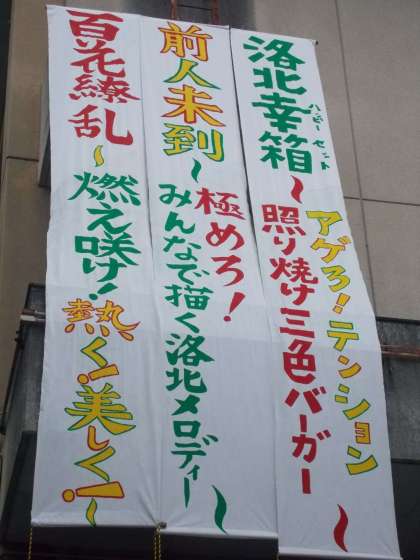 洛北幸箱～
ハッピーセット
アゲろ！テンション
照り焼け三色バーガー～
前人未到～
極めろ！
みんなで描く洛北メロディー～
百花繚乱～
燃え咲け！
熱く！美しく！～